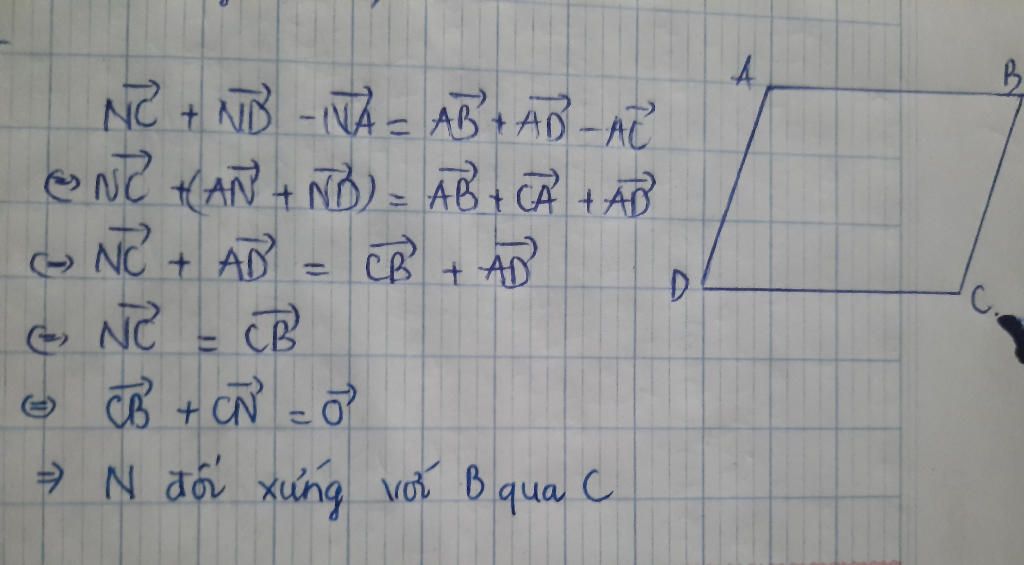 $\overrightarrow{NC} + \overrightarrow{ND} - \overrightarrow{NA} = \overrightarrow{AB} + \overrightarrow{AD} - \overrightarrow{AC}$
$\Leftrightarrow \overrightarrow{NC} + (\overrightarrow{AN} + \overrightarrow{ND}) = \overrightarrow{AB} + \overrightarrow{CA} + \overrightarrow{AD}$
$\Leftrightarrow \overrightarrow{NC} + \overrightarrow{AD} = \overrightarrow{CB} + \overrightarrow{AD}$
$\Leftrightarrow \overrightarrow{NC} = \overrightarrow{CB}$
$\Leftrightarrow \overrightarrow{CB} + \overrightarrow{CN} = \overrightarrow{0}$
⇒ N đối xứng với B qua C
A B
D C.